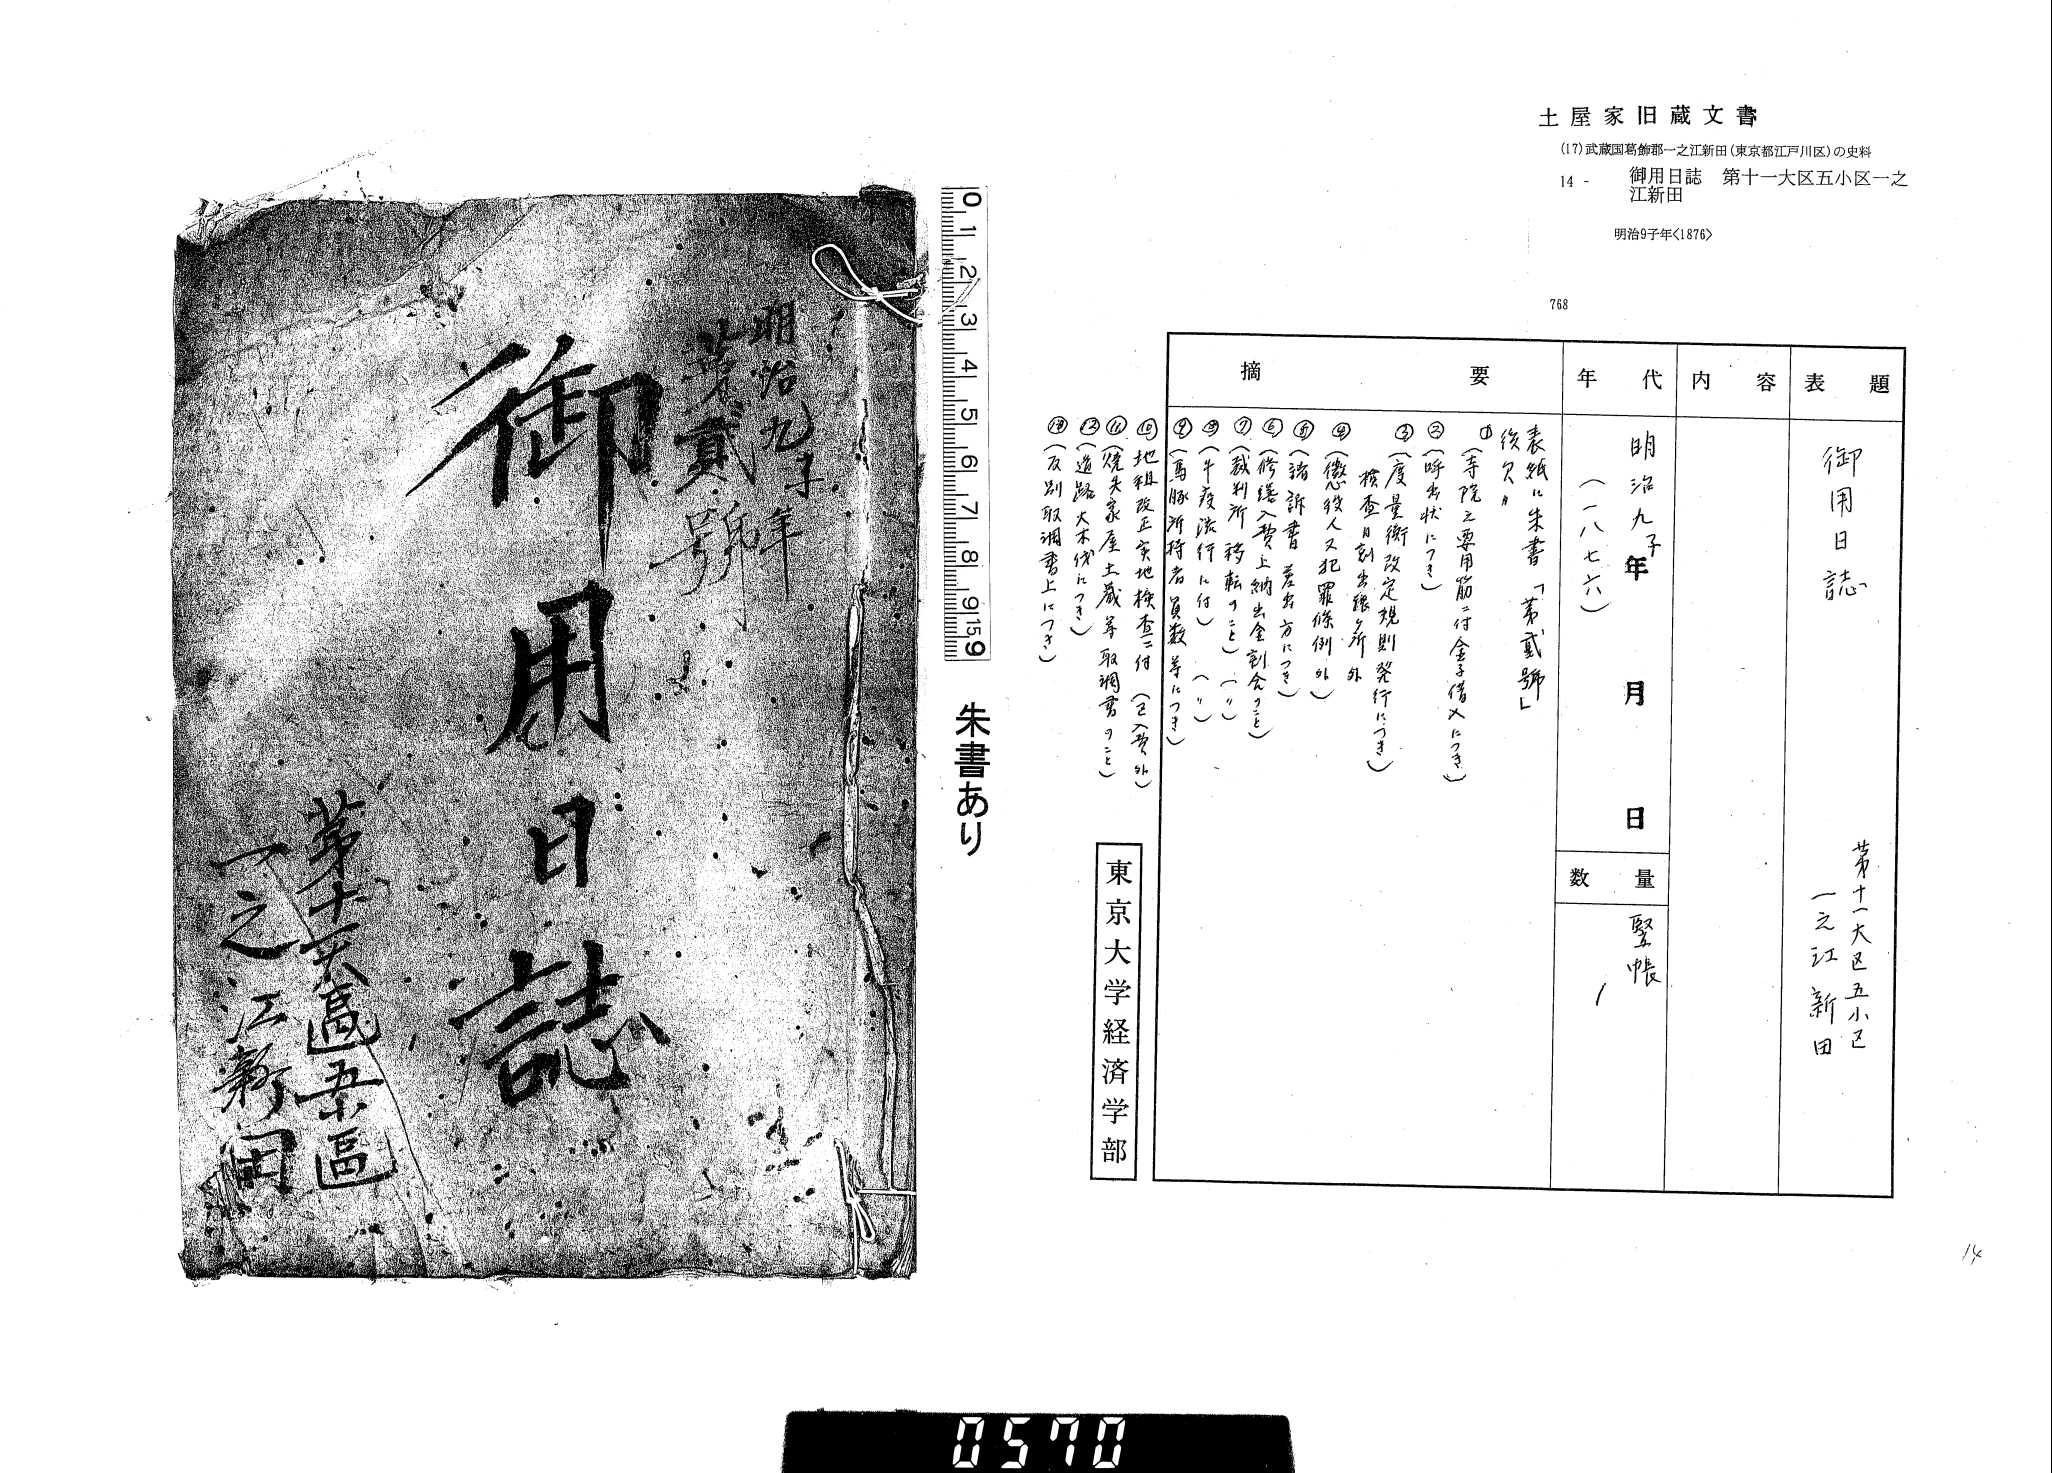 土屋家旧蔵文書
(17)武蔵国葛飾郡一之江新田(東京都江戸川区)の史料
14 - 御用日誌 第十一大区五小区一之
江新田
明治9子年<1876>
768
表題
御用日誌
第十一大区五小区
一之江新田
内容
年代
明治九子年 月 日
(一八七六)
数量
竪帳
1
摘要
表紙に朱書「第貳號」
後欠〃
① (寺院之要用筋ニ付金子借入につき)
② (呼出状につき)
③ (度量衡改定規則発行につき)
検査日割出張ヶ所外
④ (懲役人又犯罪條例外)
⑤ (諸訴書差出方につき)
⑥ (修繕入費上納出金割合のこと)
⑦ (裁判所移転のこと) (〃)
⑧ (牛疫流行に付) (〃)
⑨ (馬豚所持者員数等につき)
⑩ 地租改正実地検査ニ付 (已入費外)
⑪ (焼失家屋土蔵等取調書のこと)
⑫ (道路大木伐につき)
⑬ (反別取調書上につき)
東京大学経済学部
14
0 1 2 3 4 5 6 7 8 9 15 9
朱書あり
明治九子年
第貳號
御用日誌
第十一大區五小區
一之江新田
0570